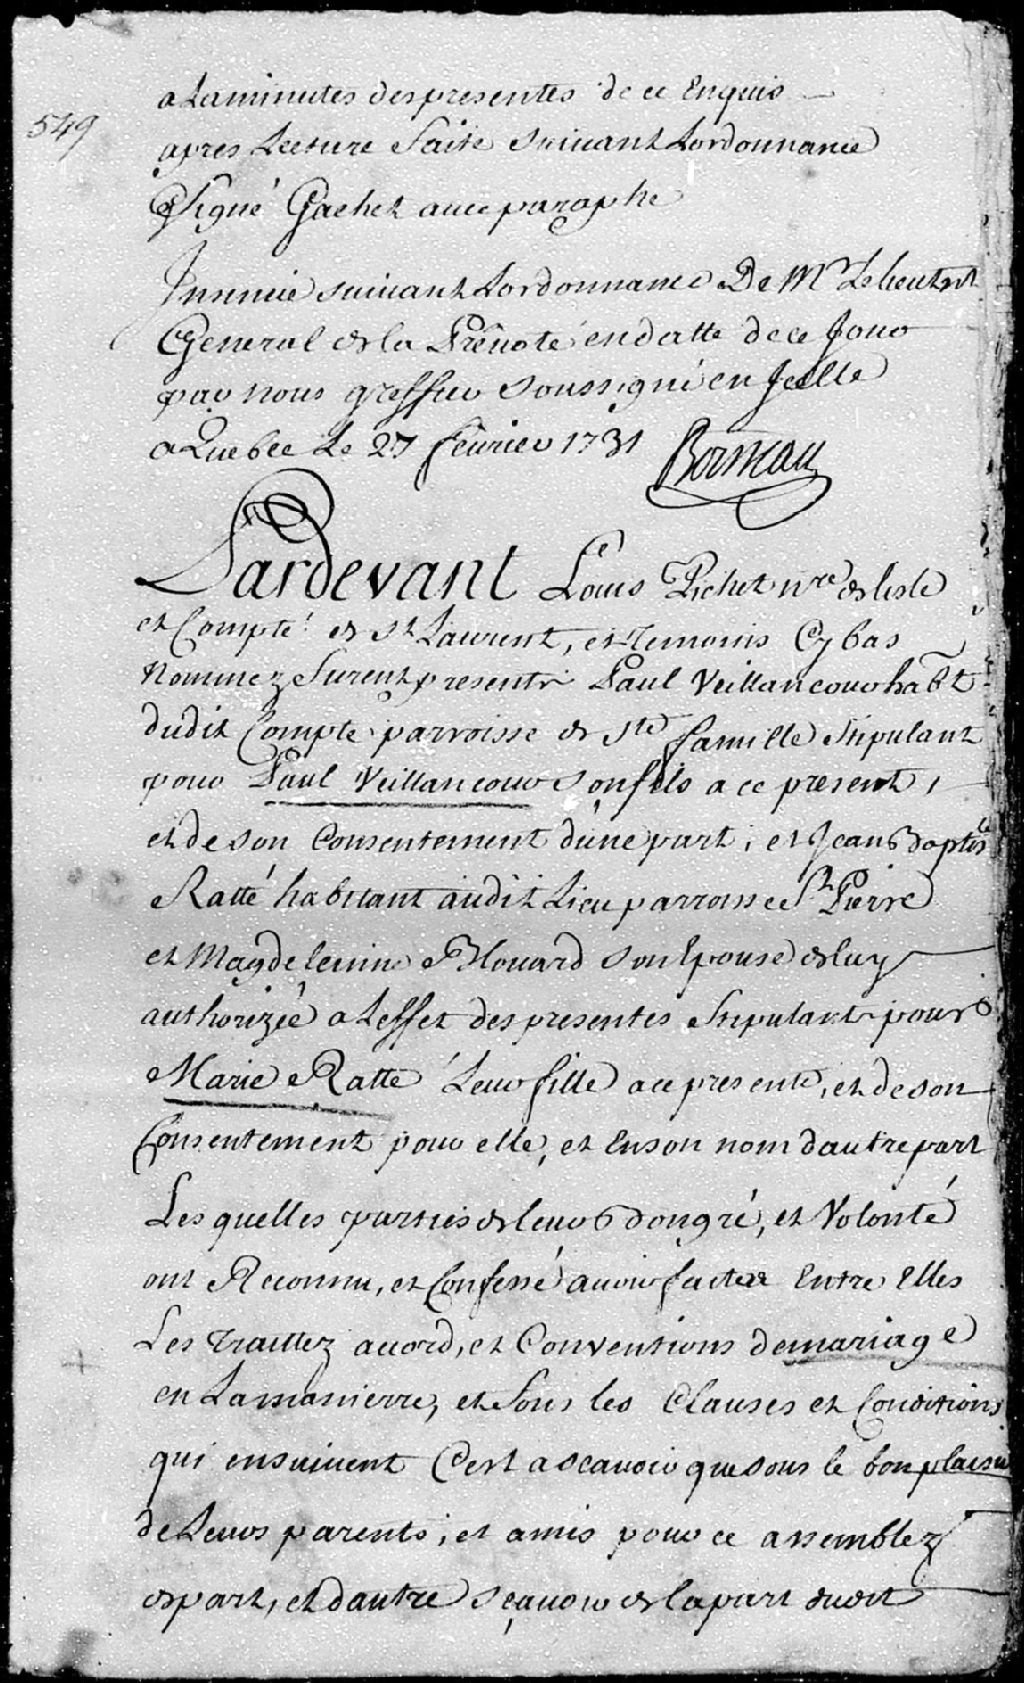 a Laminutes des presentes de ce Enquis
549
apres Lecture faite suivant Lordonnance
Signé Gachet avec paraphe
Insinué suivant Lordonnance De Mr Le lieutent
General de la Prevoté en datte de ce Jour
par nous greffier Soussigné en Jcelle
a Quebec Le 27 février 1731 Boisseau
Pardevant Louis Pichet nre de lisle
et Compté de St Laurent, et Temoins Cy bas
Nommez furent presents Paul Veillancour habt
dudit Compte parroisse de Ste famille Stipulant
pour Paul Veillancour Son fils a ce present,
et de son Consentement dune part, et Jean Baptiste
Ratté habitant audit Lieu parroisse St Pierre
et Magdeleinne Blouard Son Epouse de luy
authorizée a Leffet des presentes Stipulants pour
Marie Ratté Leur fille a ce presente, et de son
Consentement pour elle, et En son nom dautre part
Les quelles parties de leurs bon gré, et Volonté
ont Reconnu, et Confessé avoir fait Entre Elles
Les Traittez accord, et Conventions de mariage
en La manierre, et Sous les Clauses et Conditions
qui ensuivent Cest a scavoir que sous le bon plaisir
de Leurs parents, et amis pour ce assemblez
de part, et dautre sçavoir de la part dudit